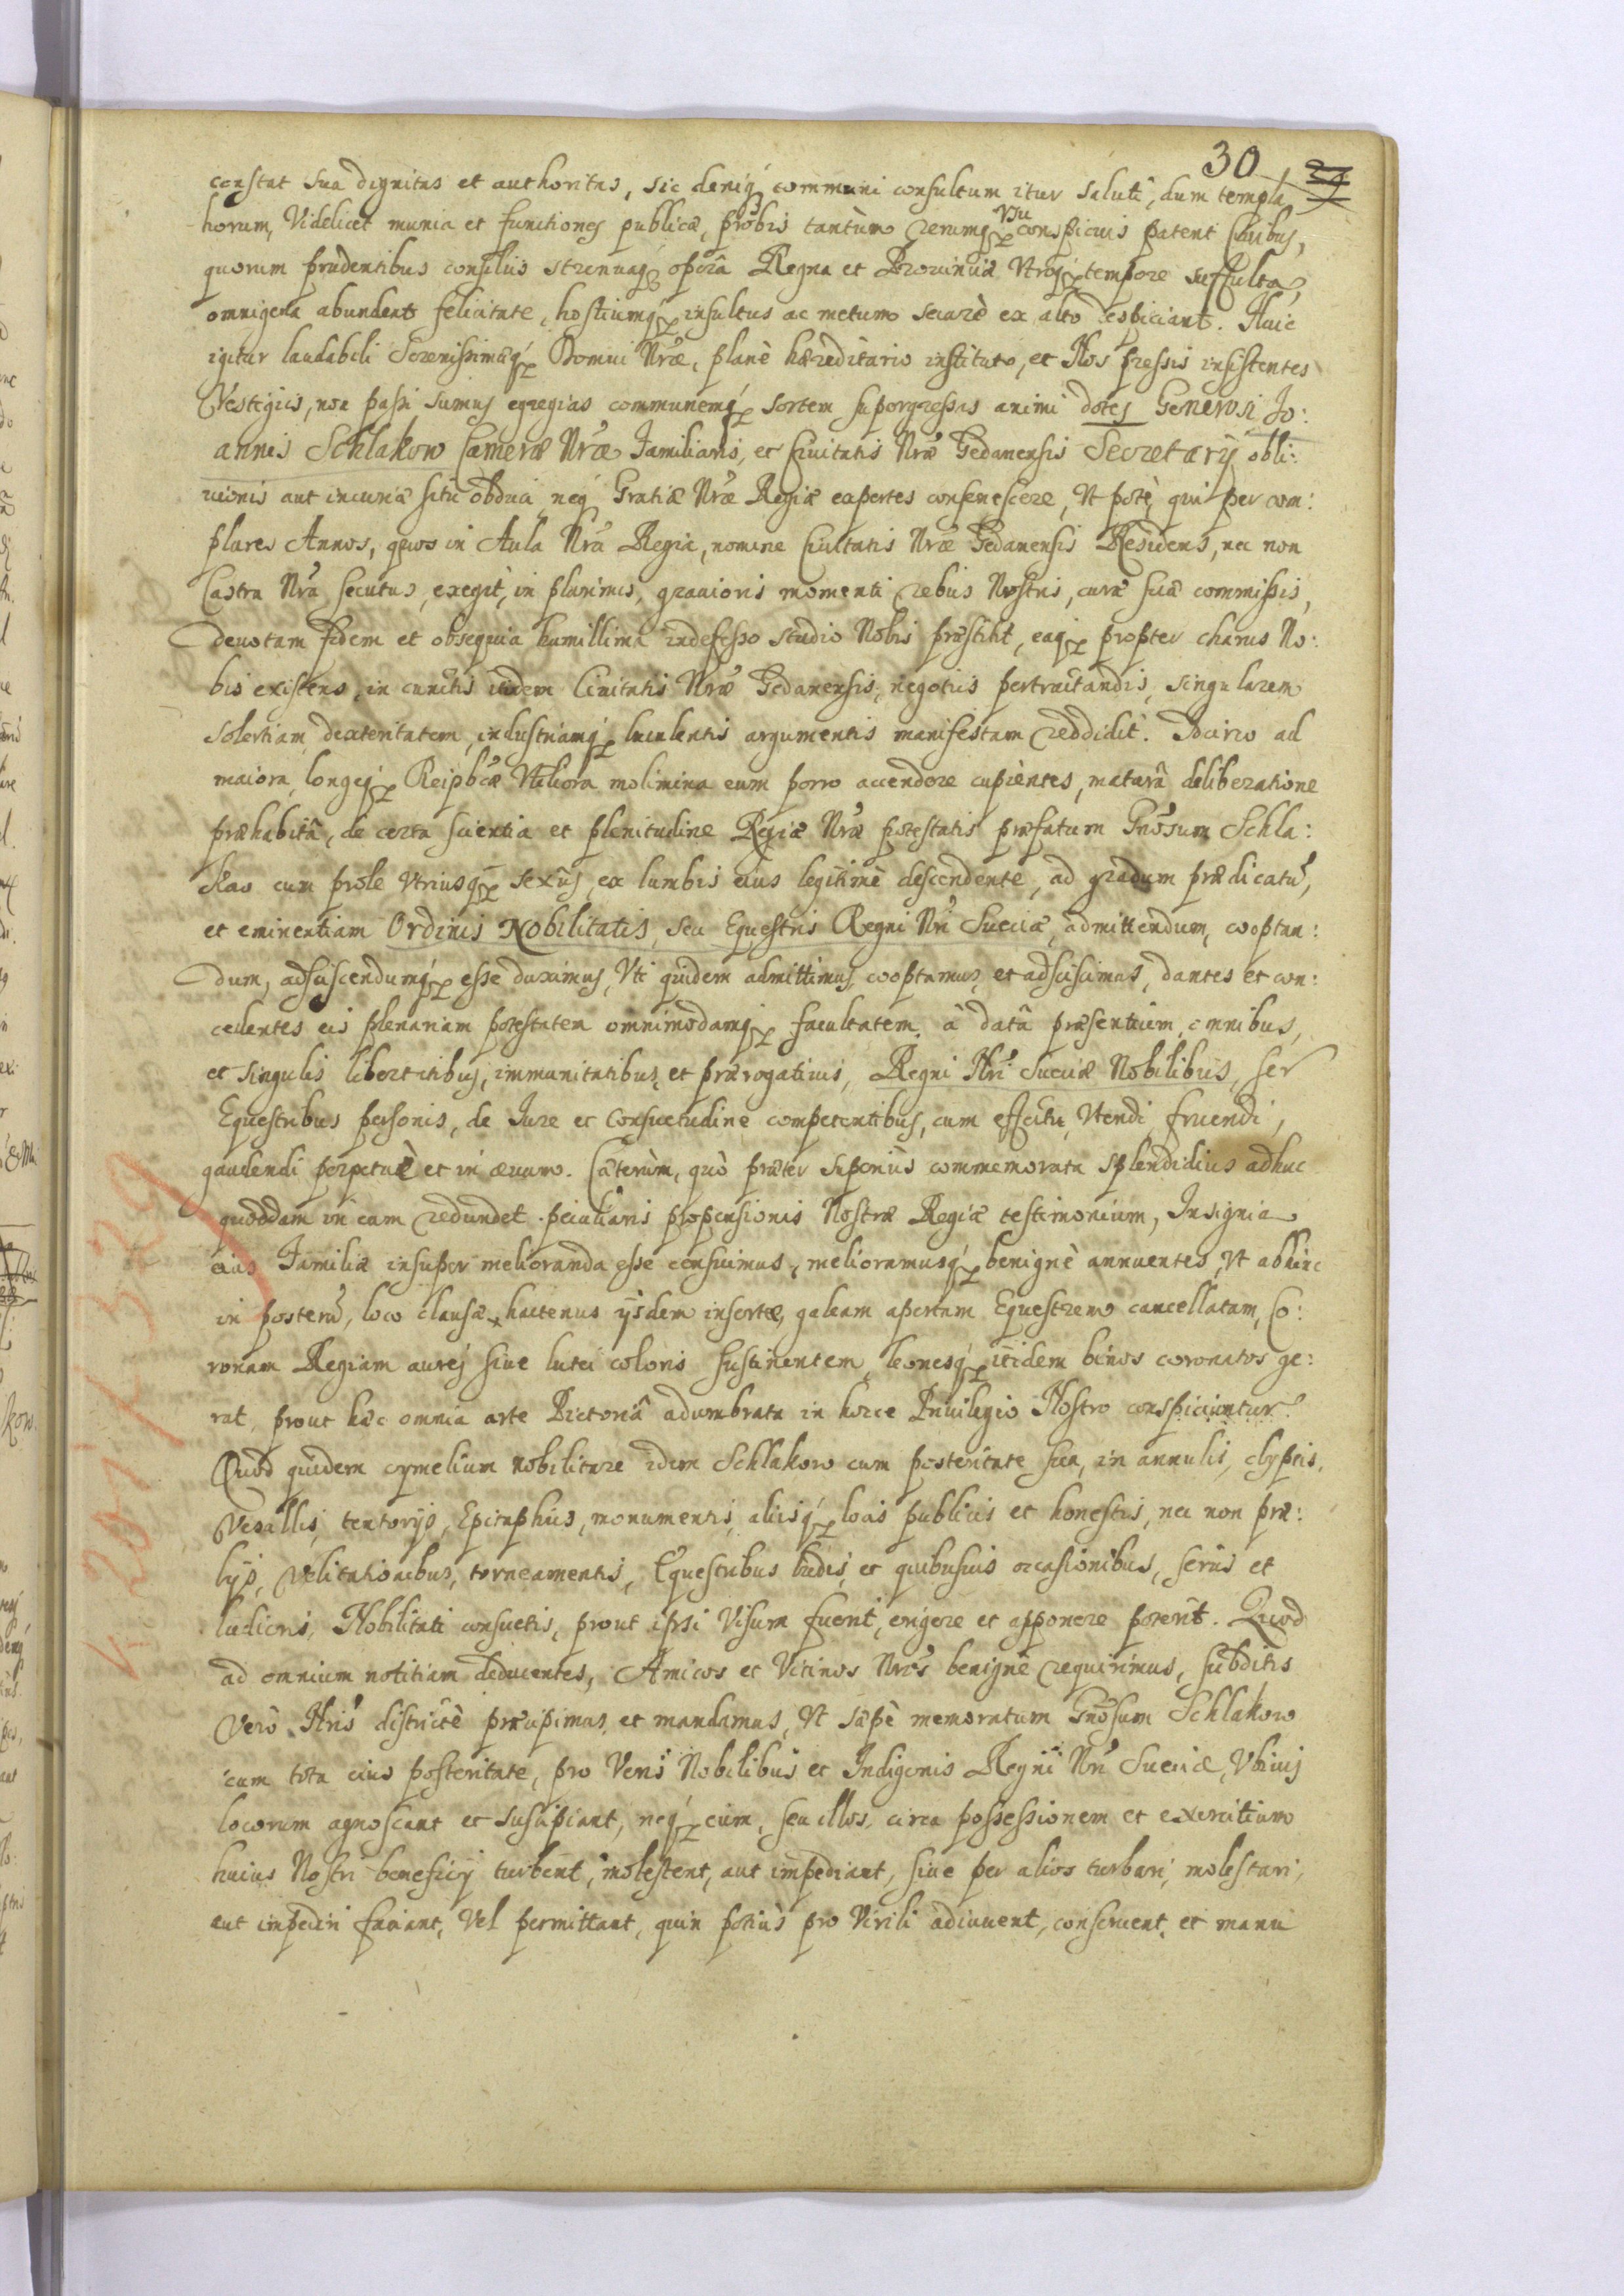 30 29
constat sua dignitas et authoritas, sic deniq́ communi consultum itur saluti, dum templa
horum, Videlicet munia et functiones publicæ, probis tantùm rerumq́ Vsu conspicuis patent Ciuibus,
quorum prudentibus consilijs strenuaq́ operâ Regna et Prouinciæ Vtroq́ tempore suffulta,
omnigena abundent felicitate, hostiumq́ insultus ac metum securè ex alto despiciant. Huic
igitur laudabili Serenissimæq́ Domui Nræ, planè hæreditario instituto, et Nos pressis insistentes
Vestigijs, non passi sumus egregias communemq́ sortem supergressas animi dotes Generosi Jo:
annis Schlakow Cameræ Nræ Familiaris, et Ciuitatis Nræ Gedanensis Secretarij obli:
uionis aut incuriæ situ obduci, neq́ Gratiæ Nræ Regiæ expertes consenescere, Vt pote, qui per com:
plures Annos, quos in Aula Nrã Regia, nomine Ciuitatis Nræ Gedanensis Residens, nec non
Castra Nrã secutus, exegit, in plurimis, grauioris momenti rebus Nostris, curæ suæ commissis,
deuotam fidem et obsequia humillima indefesso studio Nobis præstitit, eaq́ propter charus No:
bis existens, in cunctis itidem Ciuitatis Nræ Gedanensis, negotijs pertractandis, singularem
solertiam, dexteritatem, industriamq́ luculentis argumentis manifestam reddidit. Idcirco ad
maiora, longeq́ Reipbcæ Vtiliora molimina eum porro accendere cupientes, maturâ deliberatione
præhabitâ, de certa scientia et plenitudine Regiæ Nræ potestatis præfatum Gnõsum Schla:
kow cum prole Vtriusq́ sexûs, ex lumbis eius legitimè descendente, ad gradum prædicatũ,
et eminentiam Ordinis Nobilitatis, seu Equestris Regni Nri Sueciæ, admittendum, cooptan:
dum, adsciscendumq́ esse duximus, Vti quidem admittimus, cooptamus, et adsciscimus, dantes et con:
cedentes eis plenariam potestatem omnimodamq́ facultatem, â datâ præsentium, omnibus,
et singulis libertatibus, immunitatibus, et prærogatiuis, Regni Nri Sueciæ Nobilibus, seu
Equestribus personis, de Jure et Consuetudine competentibus, cum effectu, Vtendi, fruendi,
gaudendi perpetuè et in æuum. Cæterùm, quò præter superiùs commemorata splendidius adhuc
quoddam in eum redundet peculiaris propensionis Nostræ Regiæ testimonium, Insignia
eius Familiæ insuper melioranda esse censuimus, melioramusq́ benignè annuentes, Vt abhinc
in posterũ, loco clausæ hactenus ijsdem insertæ, galeam apertam Equestrem cancellatam, Co:
ronam Regiam aurej siue lutei coloris sustinentem, leonesq́ itidem binos coronatos ge:
rat, prout hæc omnia arte Pictoriâ adumbrata in hocce Priuilegio Nostro conspiciuntur.
Quod quidem cymelium nobilitare idem Schlakow cum posteritate sua, in annulis, clypeis,
Vexillis, tentorijs, Epitaphijs, monumentis, alijsq́ locis publicis et honestis, nec non præ:
lijs, Velitationibus, torneamentis, Equestribus ludis, et quibusuis occasionibus, serijs et
ludicris, Nobilitati consuetis, prout ipsi Visum fuerit, erigere et apponere poterit. Quod
ad omnium notitiam deducentes, Amicos et Vicinos Nros benignè requirimus, subditis
Verò Nris districtè præcipimus et mandamus, Vt sæpè memoratum Gnõsum Schlakow
cum tota eius posteritate, pro Veris Nobilibus et Indigenis Regni Nri Sueciæ, Vbiuis
locorum agnoscant et suscipiant, neq́ eum, seu illos, circa possessionem et exercitium
huius Nostri beneficij turbent, molestent, aut impediant, siue per alios turbari, molestari,
aut impediri faciant, Vel permittant, quin potiùs pro Virili adiuuent, conseruent, et manu